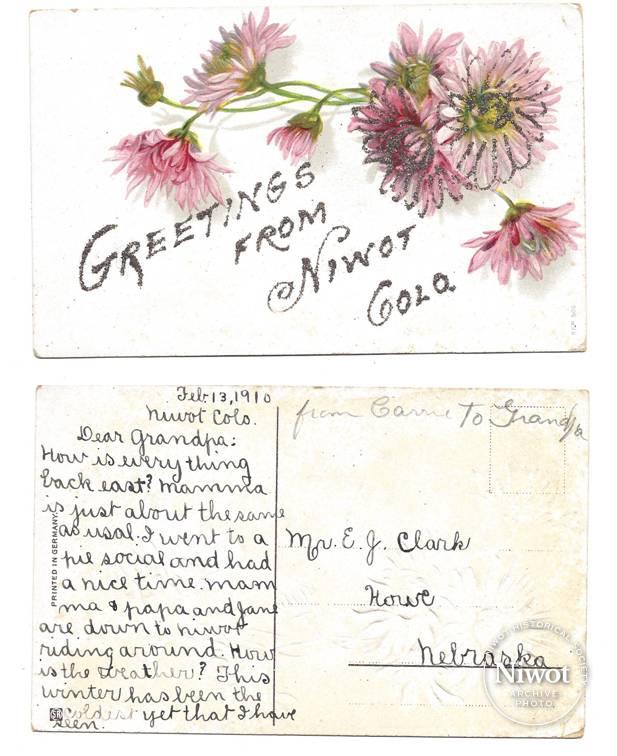 GREETINGS
FROM
NIWOT
COLO.
Feb. 13, 1910
Niwot Colo.
Dear Grandpa:
How is every thing
back east? Mamma
is just about the same
as usal. I went to a
pie social and had
a nice time. Mam
ma & papa and Jane
are down to niwot
riding around. How
is the weather? This
winter has been the
coldest yet that I have
seen.
PRINTED IN GERMANY.
from Carrie To Grandpa
Mr. E. J. Clark
Howe
Nebraska
NIWOT HISTORICAL SOCIETY
Niwot
ARCHIVE
PHOTO